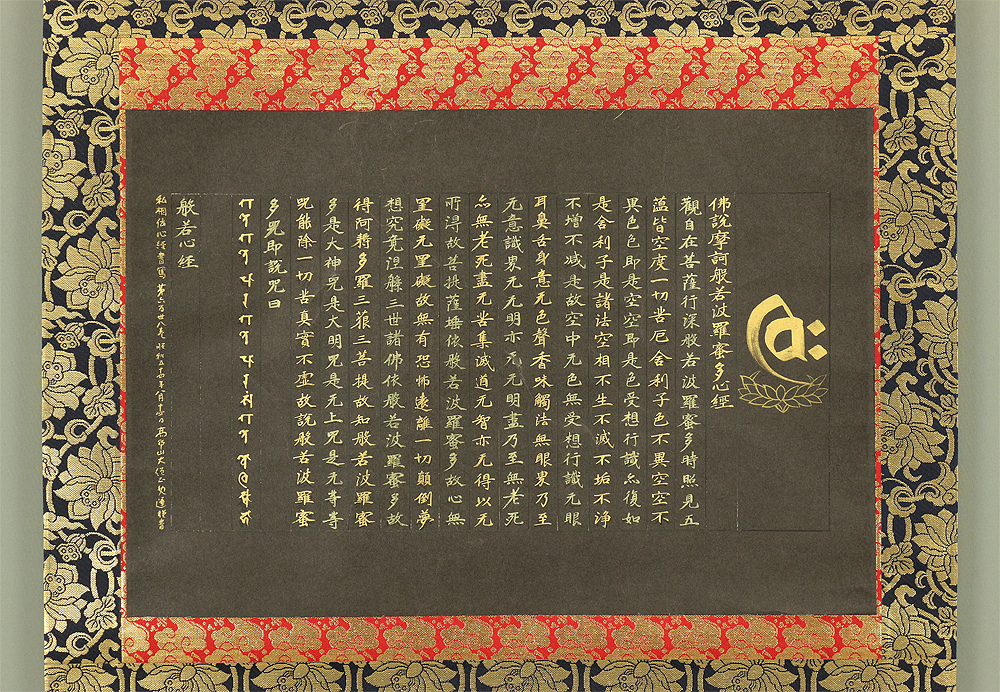 佛說摩訶般若波羅蜜多心經
觀自在菩薩行深般若波羅蜜多時照見五
蘊皆空度一切苦厄舍利子色不異空空不
異色色即是空空即是色受想行識亦復如
是舍利子是諸法空相不生不滅不垢不淨
不增不減是故空中无色無受想行識无眼
耳鼻舌身意无色聲香味觸法無眼界乃至
无意識界无无明亦无无明盡乃至無老死
亦無老死盡无苦集滅道无智亦无得以无
所得故菩提薩埵依般若波羅蜜多故心無
罣礙无罣礙故無有恐怖遠離一切顛倒夢
想究竟涅槃三世諸佛依般若波羅蜜多故
得阿耨多羅三藐三菩提故知般若波羅蜜
多是大神咒是大明咒是无上咒是无等等
咒能除一切苦真實不虛故說般若波羅蜜
多咒即說咒曰
般若心經